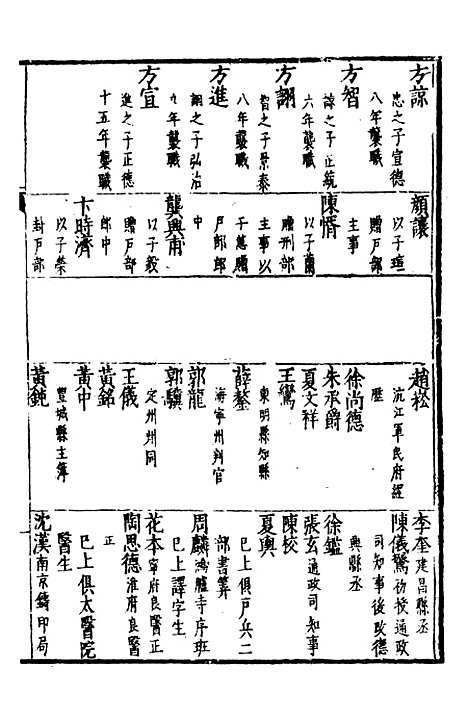 方諒
忠之子宣德
八年襲職
方智
諒之子正統
六年襲職
方詡
智之子景泰
八年襲職
方進
詡之子弘治
九年襲職
方宣
進之子正德
十五年襲職
顏讓
以子瑄
贈戶部
主事
陳惰
以子蘭
贈刑部
主事以
千萬贈
戶部郎
中
龔興甫
以子毅
贈戶部
郎中
卞時濟
以子榮
封戶部
趙崧
沅江軍民府經
歷
徐尚德
朱承爵
夏文祥
王鸞
東明縣知縣
薛鏊
海寧州判官
郭龍
郭驥
定州州同
王儀
黃銘
黃中
豐城縣主簿
黃鈍
李奎建昌縣丞
陳儀驚初授通政
司知事後改德
興縣丞
徐鑑
張玄通政司知事
陳校
夏輿
已上俱戶兵二
部書筭
周麟鴻臚寺序班
已上譯字生
花本寧府良醫正
陶思德淮府良醫
正
已上俱太醫院
醫生
沈漢南京鑄印局